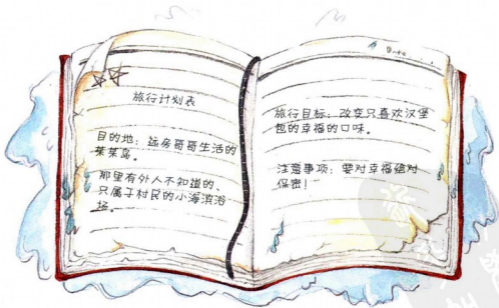 旅行计划表
目的地：远房哥哥生活的
茱茱岛。
那里有外人不知道的、
只属于村民的小海滨浴
场。
旅行目标：改变只喜欢汉堡
包的幸福的口味。
注意事项：要对幸福绝对
保密！